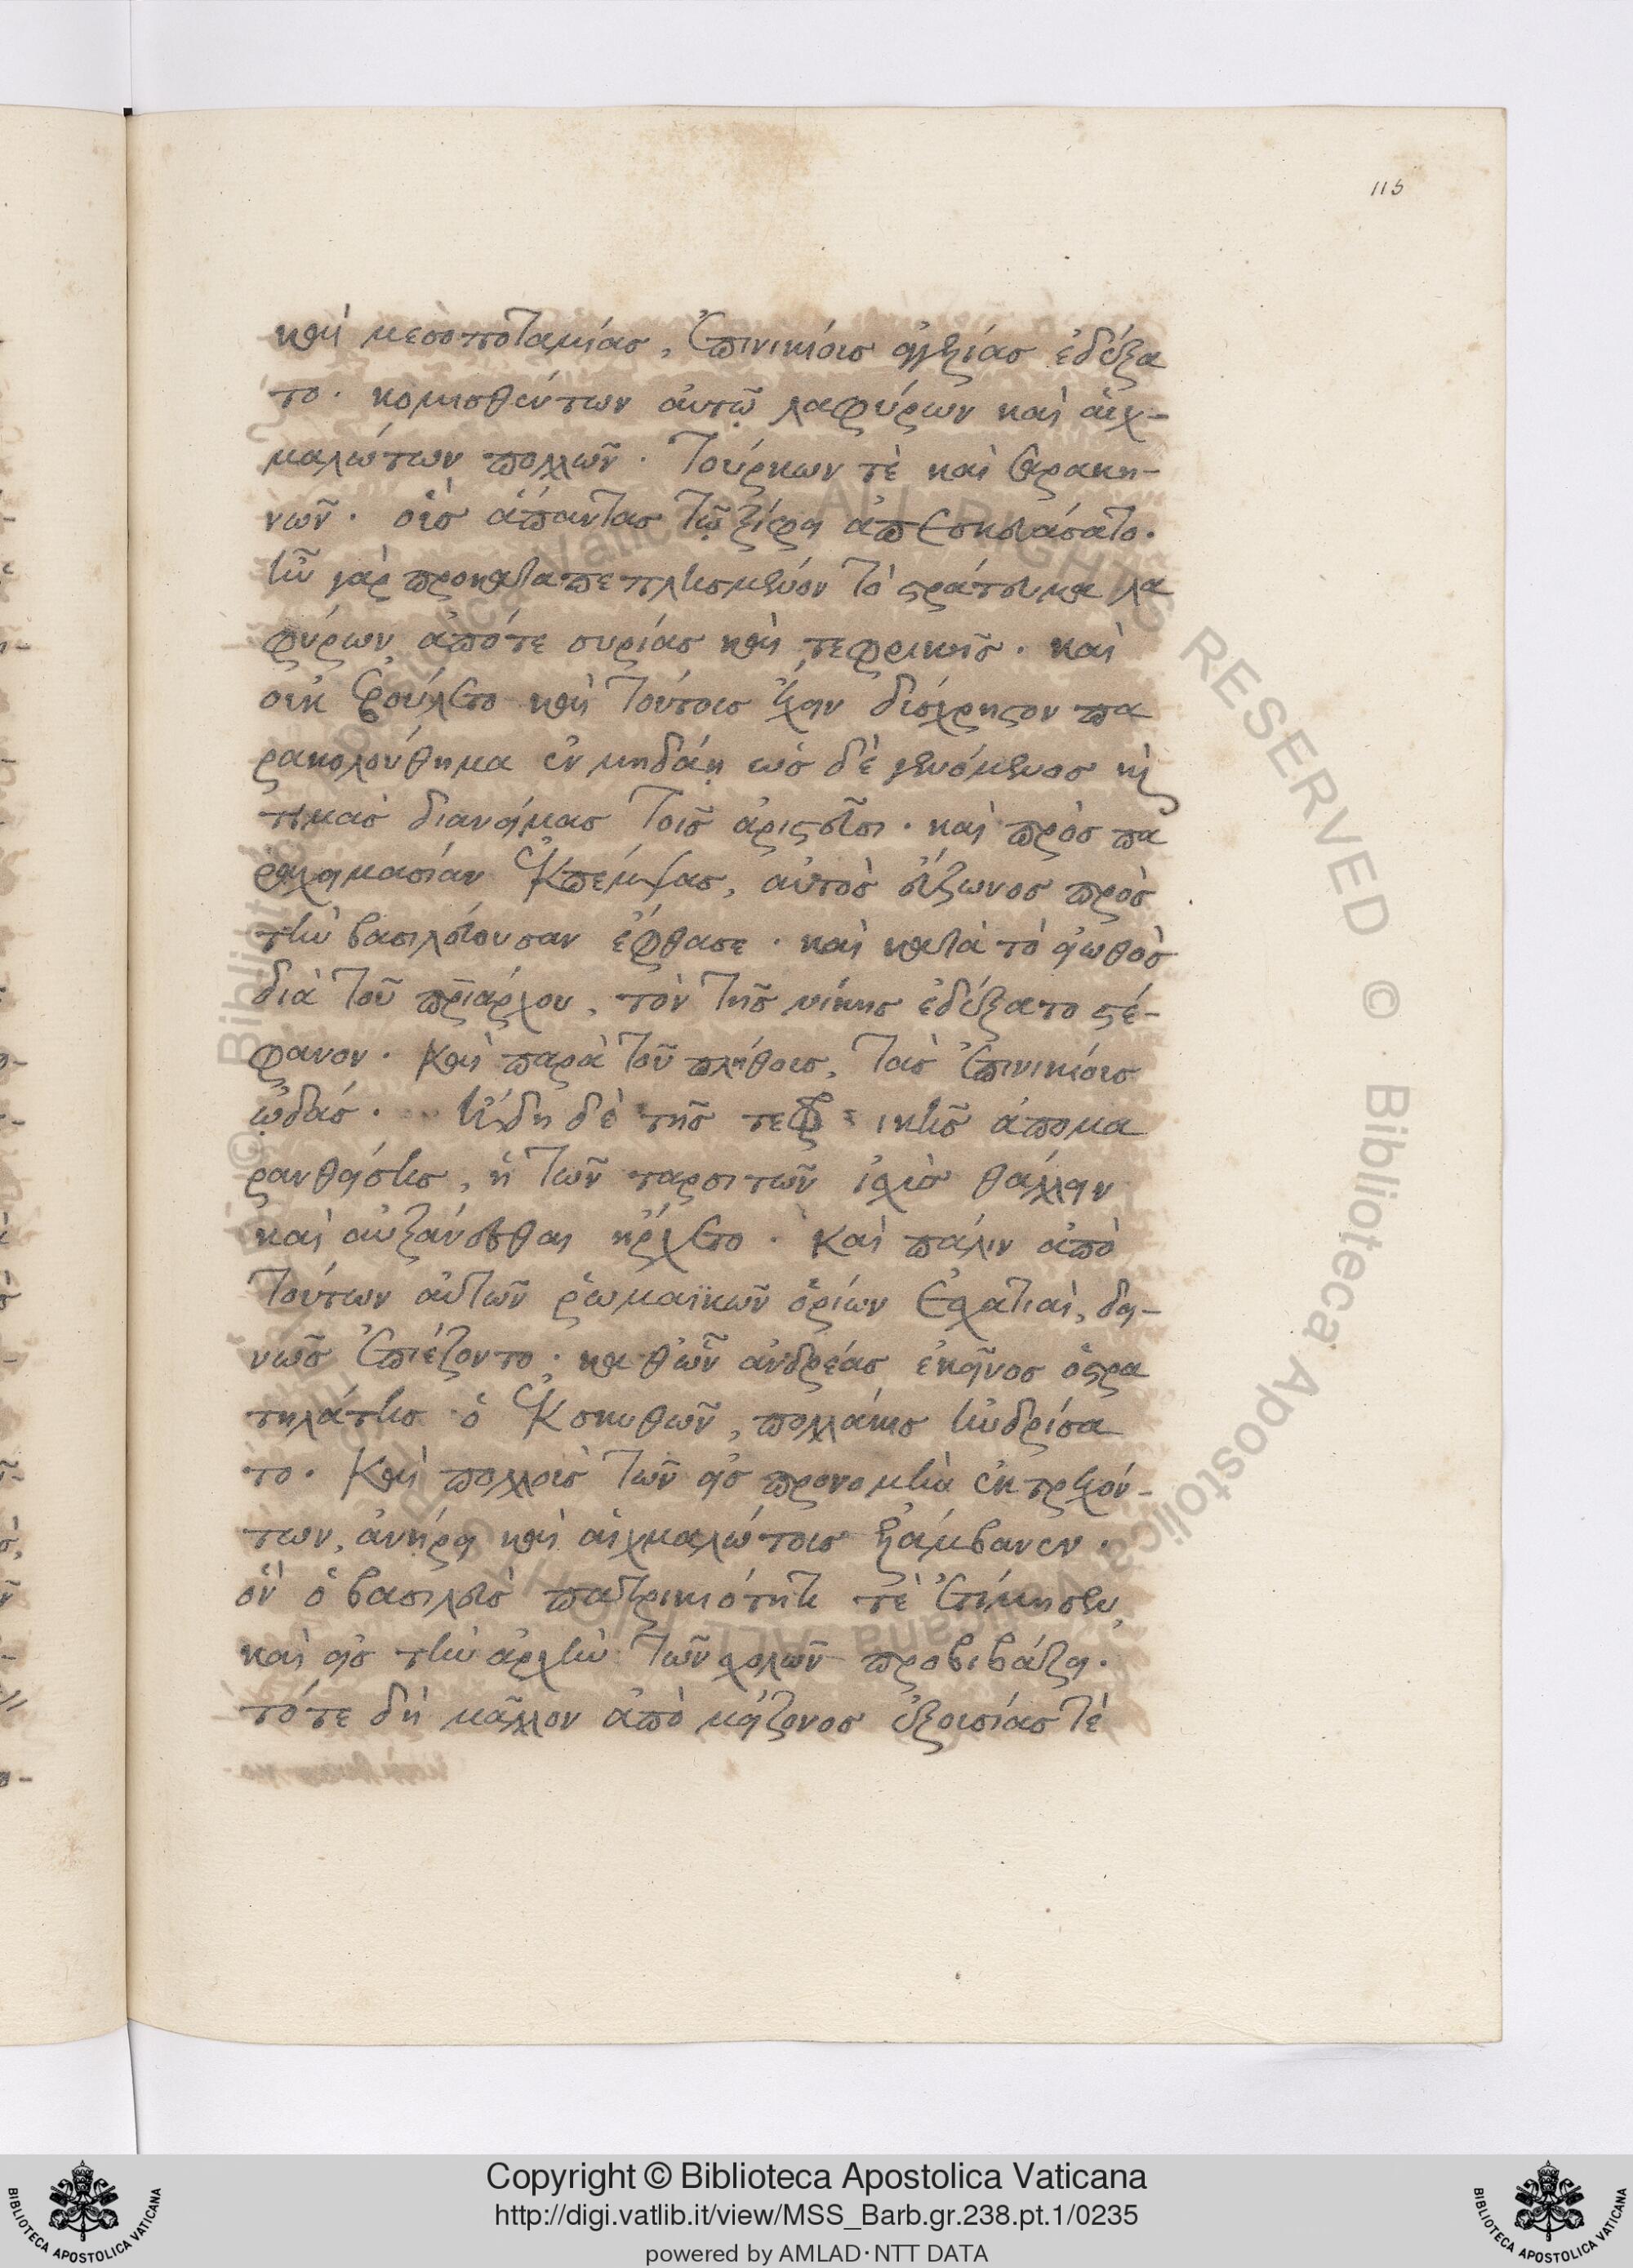 115
καὶ μεσοποταμίας, ἐπινικίους εἰ ἀξίας ἐδέξα
το. κομισθέντων αὐτῷ λαφύρων καὶ αἰχ-
μαλώτων πολλῶν. Τούρκων τὲ καὶ Σαρακη-
νῶν. οὓς ἅπαντας τῷ ξίφει ἀπεσκευάσατο.
ἦν γὰρ προκαταπεπλησμένον τὸ στράτευμα λα
φύρων ἀπότε συρίας καὶ τεφρικῆς. καὶ
οὐκ ἐβούλετο καὶ τούτους ἔχειν δύσχρηστον πα
ρακολούθημα
τιμὰς διανείμας τοῖς ἀριστεῦσι. καὶ πρὸς πα
ραχειμασίαν ἐκπέμψας, αὐτὸς εὔζωνος πρὸς
τὴν βασιλεύουσαν ἔφθασε. καὶ κατὰ τὸ εἰωθὸς
διὰ τοῦ πριάρχου, τὸν τῆς νίκης ἐδέξατο στέ-
φανον. καὶ παρὰ τοῦ πλήθους, τὰς ἐπινικίους
ᾠδάς. ἤδη δὲ τῆς τεφρικῆς ἀπομα
ρανθείσης, ἡ τῶν ταρσιτῶν ἰσχὺς θάλλειν
καὶ αὐξάνεσθαι ἤρχετο. καὶ πάλιν ἀπὸ
τούτων αὐτῶν ῥωμαϊκῶν ὁρίων ἐσχατιαὶ, δει-
νῶς ἐπιέζοντο. καθ' ὧν ἀνδρέας ἐκεῖνος ὁ στρα
τηλάτης ὁ ἐκ σκυθῶν, πολλάκις ἠνδρίσα
το. καὶ πολλοὺς τῶν εἰς προνομὴν ἐκτρεχόν-
των, ἀνῄρει καὶ αἰχμαλώτους ἐλάμβανεν.
ὃν ὁ βασιλεὺς πατρικιότητι τὲ ἐτίμησεν
καὶ εἰς τὴν ἀρχὴν τῶν σχολῶν προβιβάζει.
τότε δὴ μᾶλλον ἀπὸ μείζονος ἐξουσίας τὲ
Copyright © Biblioteca Apostolica Vaticana
http://digi.vatlib.it/view/MSS_Barb.gr.238.pt.1/0235
powered by AMLAD·NTT DATA